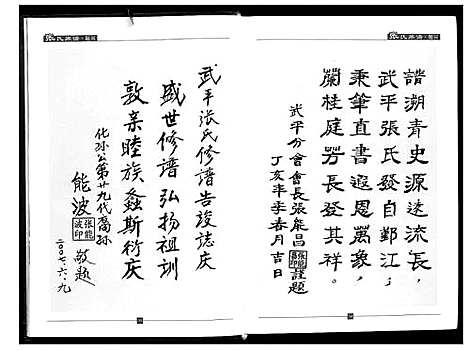 張氏族譜
譜溯青史源遠流長，
武平張氏發自鄞江；
秉筆直書遐恩萬象，
蘭桂庭芳長發其祥。
武平分會會長張能昌 謹題
丁亥年季春月吉日
張氏族譜
武平张氏修谱告竣誌庆
盛世修谱 弘扬祖训
敦亲睦族 螽斯衍庆
化孙公第廿九代裔孙
能波 張能波印 敬题
二〇〇七.六.九